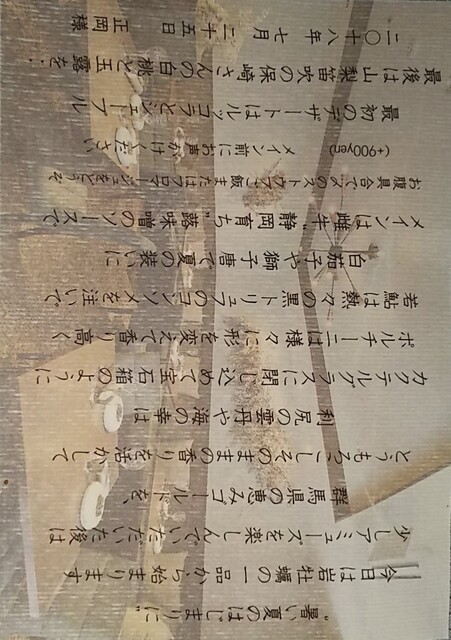 "暑い夏のはじまりに"
今日は岩牡蠣の一品から始まります
少しアミューズを楽しんでいただいた後は
群馬県の恵みゴールドを、
とうもろこしそのままの香りを活かして
利尻の雲丹や海の幸は
カクテルグラスに閉じ込めて宝石箱のように
ポルチーニは様々に形を変えて香り高く
若鮎は熱々の黒トリュフのコンソメを注いで
白茄子や獅子唐で夏の装いに
メインは "雌牛"静岡育ち"蕗味噌のソースで
お腹具合で〆のストウブご飯またはフロマージュをどうぞ
(+900yen) メイン前にお声かけください
最初のデザートはルッコラとジェーブル
最後は山梨笛吹の保崎さんの白桃と玉露を・
二〇十八年 七月 二十五日 正岡様